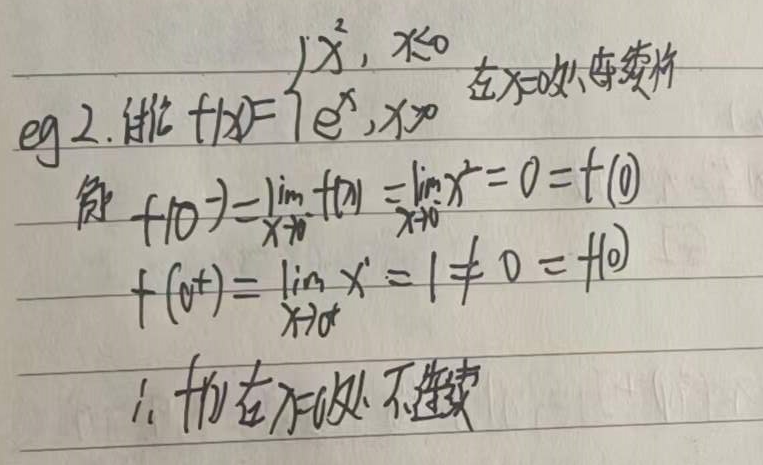 eg 2. 讨论 f(x)={x², x≤0 在x=0处连续性
e^x, x>0
解 f(0⁻)=lim x→0⁻ f(x) = lim x→0⁻ x² = 0 = f(0)
f(0⁺) = lim x→0⁺ x = 1 ≠ 0 = f(0)
∴ f(x)在x=0处不连续